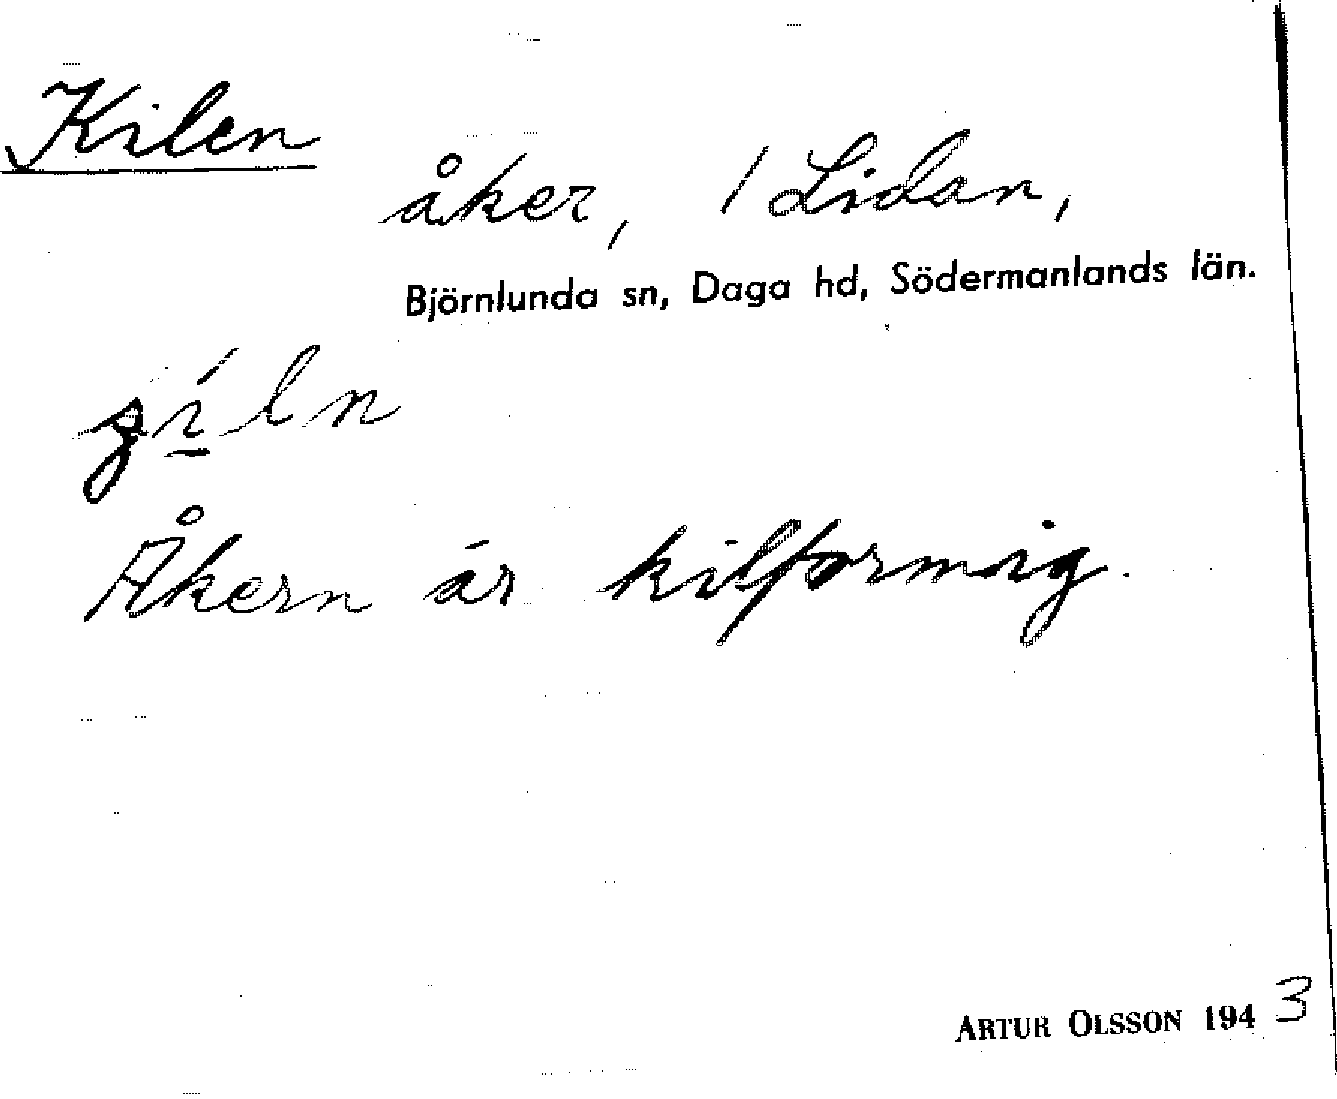 Kilen
åker, 1 Lidan,
Björnlunda sn, Daga hd, Södermanlands län.
Åkern är kilformig.
ARTUR OLSSON 1943